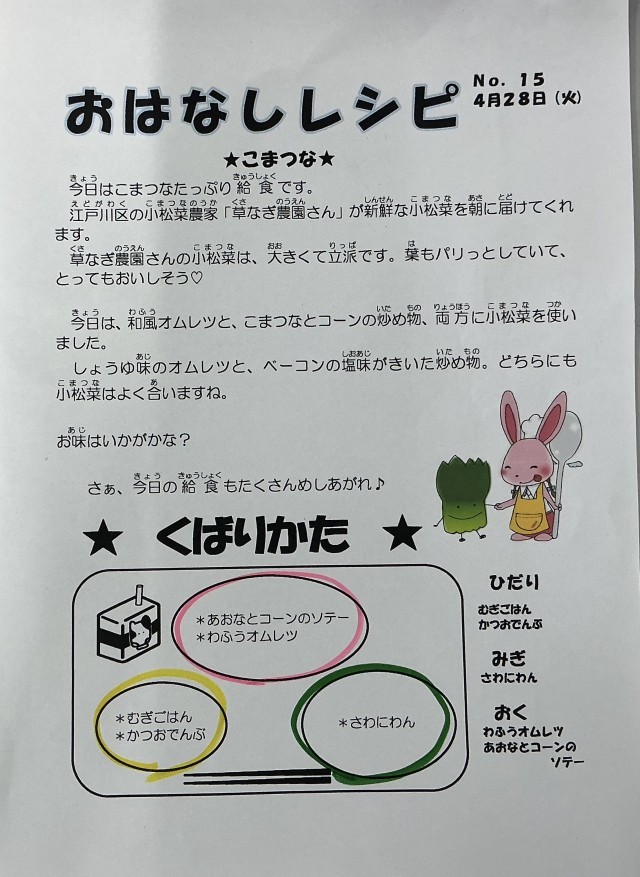 おはなしレシピ
No. 15
4月28日（火）
★こまつな★
今日はこまつなたっぷり給食です。
江戸川区の小松菜農家「草なぎ農園さん」が新鮮な小松菜を朝に届けてくれ
ます。
草なぎ農園さんの小松菜は、大きくて立派です。葉もパリっとしていて、
とってもおいしそう♡
今日は、和風オムレツと、こまつなとコーンの炒め物、両方に小松菜を使い
ました。
しょうゆ味のオムレツと、ベーコンの塩味がきいた炒め物。どちらにも
小松菜はよく合いますね。
お味はいかがかな？
さぁ、今日の給食もたくさんめしあがれ♪
★ くばりかた ★
＊あおなとコーンのソテー
＊わふうオムレツ
＊むぎごはん
＊かつおでんぶ
＊さわにわん
ひだり
むぎごはん
かつおでんぶ
みぎ
さわにわん
おく
わふうオムレツ
あおなとコーンの
ソテー